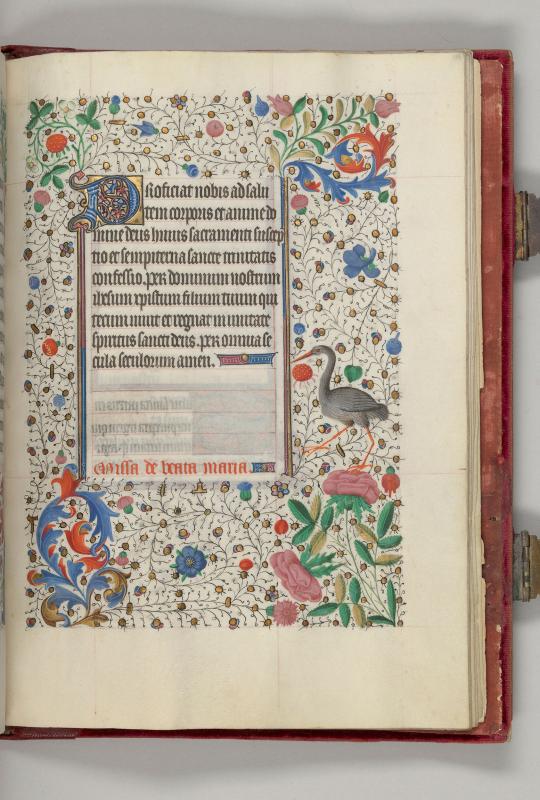 Proficiat nobis ad salu
tem corporis et anime do
mine deus huius sacramenti suscep
tio et sempiterna sancte trinitatis
confessio. per dominum nostrum
ihesum xpistum filium tuum qui
tecum uiuit et regnat in unitate
spiritus sancti deus. per omnia se
cula seculorum amen.
Missa de beata maria.